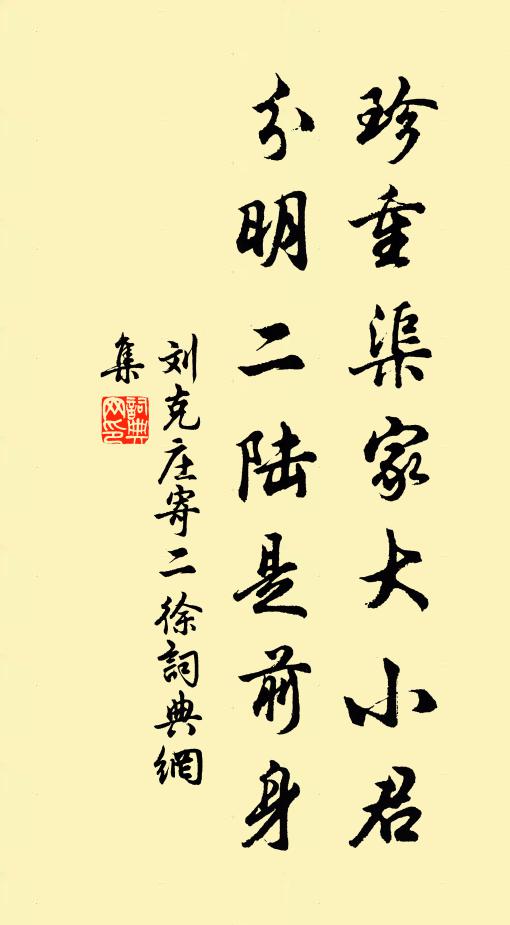 珍重渠家大小君
分明二陆是前身
刘克庄寄二徐词典網
集
詞典網印